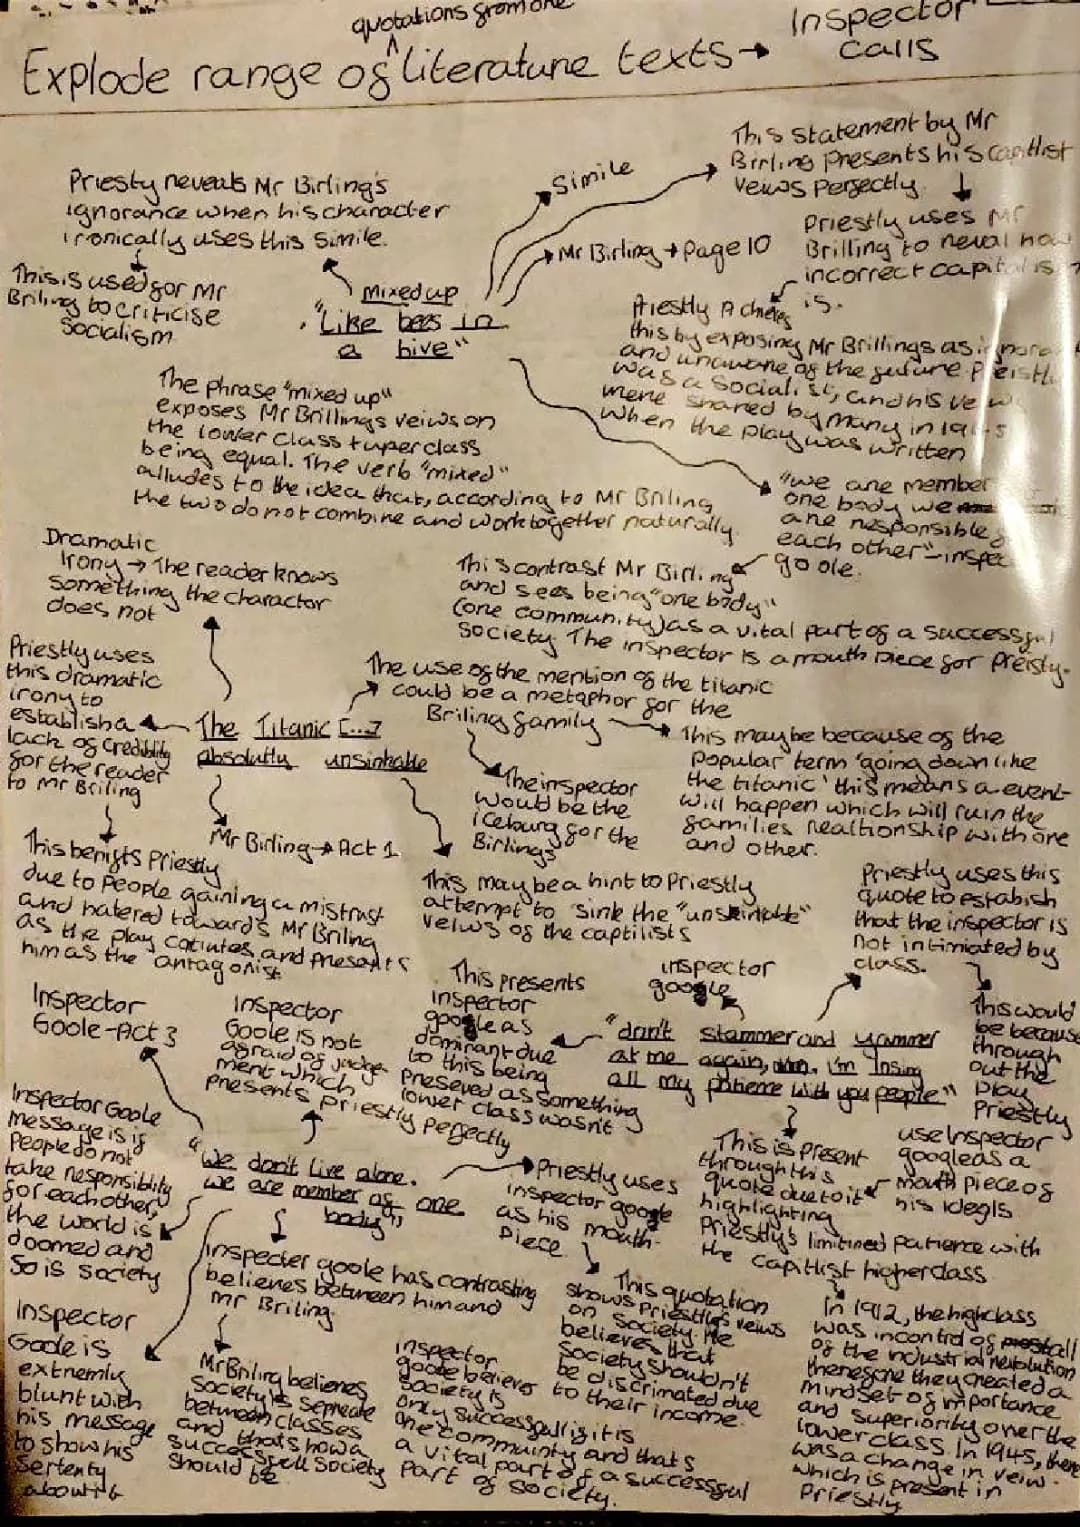 quotations from one
Explode range of literature texts →
Inspector
calls
Priesty reveals Mr Birling's
ignorance when his character
ironically uses this simile.
This is used for Mr
Briling to criticise
Socialism
Mixed up
"Like bees in
a hive"
Simile
Mr Birling → Page 10
This statement by Mr
Birling presents his capitlist
veiws perfectly.
Priestly uses Mr
Brilling to reval how
incorrect capitalis
is.
Priestly Achieves
this by exposing Mr Brillings as ignora
and unaware of the future. Preistly
was a Socialist, and his veiw
were shared by many in 1945
when the play was written
The phrase "mixed up"
exposes Mr Brillings veiws on
the lower class + uperclass
being equal. The verb "mixed"
alludes to the idea that, according to Mr Briling
the two do not combine and work together naturally.
"we are member
one body we
are responsible
each other" - inspec
goole.
This contrast Mr Birling
and sees being "one body"
(one community) as a vital part of a successful
society. The inspector is a mouth piece for Preisty.
Dramatic
Irony → The reader knows
something the charactor
does not
Priestly uses
this dramatic
irony to
establish a
lack of credibliy
for the reader
to Mr Briling
The Titanic [...]
absolutly unsinkable
The use of the mention of the titanic
could be a metaphor for the
Briling family
This maybe because of the
popular term 'going down like
the titanic' this means a event
will happen which will ruin the
families realtionship with one
and other.
The inspector
would be the
iceburg for the
Birlings
Mr Birling → Act 1
This benifts Priestly
due to people gaining a mistrust
and hatered towards Mr Briling
as the play cotinutes, and presents
him as the antagonist
This may be a hint to Priestly
attempt to sink the "unsinkable"
veiws of the captilists
Priestly uses this
quote to estabish
that the inspector is
not intimiated by
class.
This would
be because
through
out the
play
Priestly
use Inspector
google as a
mouth piece of
his idegls
inspector
google
This presents
inspector
google as
dominant due
to this being
preseved as something
lower class wasn't
"don't stammer and yammer
at me again, man. I'm losing
all my patience with you people"
This is present
through this
quote due to it
highlighting
Priestly's limitined patience with
the capitlist higher class
In 1912, the high class
was in control of all
of the industrial revolution
therefore they created a
mindset of importance
and superiority over the
lower class. In 1945, there
was a change in veiw.
which is present in
Priestly
Inspector
Goole - Act 3
Inspector
Goole is not
afraid of judge
ment which
presents priestly perfectly
Inspector Goole
message is if
people do not
take responsiblity
for each other,
the world is
doomed and
so is society
"We don't live alone.
we are member of one
body"
Priestly uses
inspector google
as his mouth-
piece
This quotation
shows Priestly's veiws
on society. He
believes that
Society shouldn't
be discrimated due
to their income.
inspecter goole has contrasting
believes between him and
mr Briling.
Inspector
Goole is
extremly
blunt with
his message
to show his
Sertenty
about it
Mr Briling believes
Society is sepreate
between classes
and thats how a
successfull society
should be
inspector
goole believes
society is
only successfull if it is
one community and thats
a vital part of a successful
part of society.